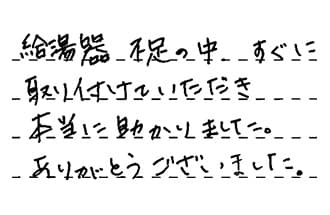 給湯器 不足の中 すぐに
取り付けていただき
本当に助かりました。
ありがとうございました。